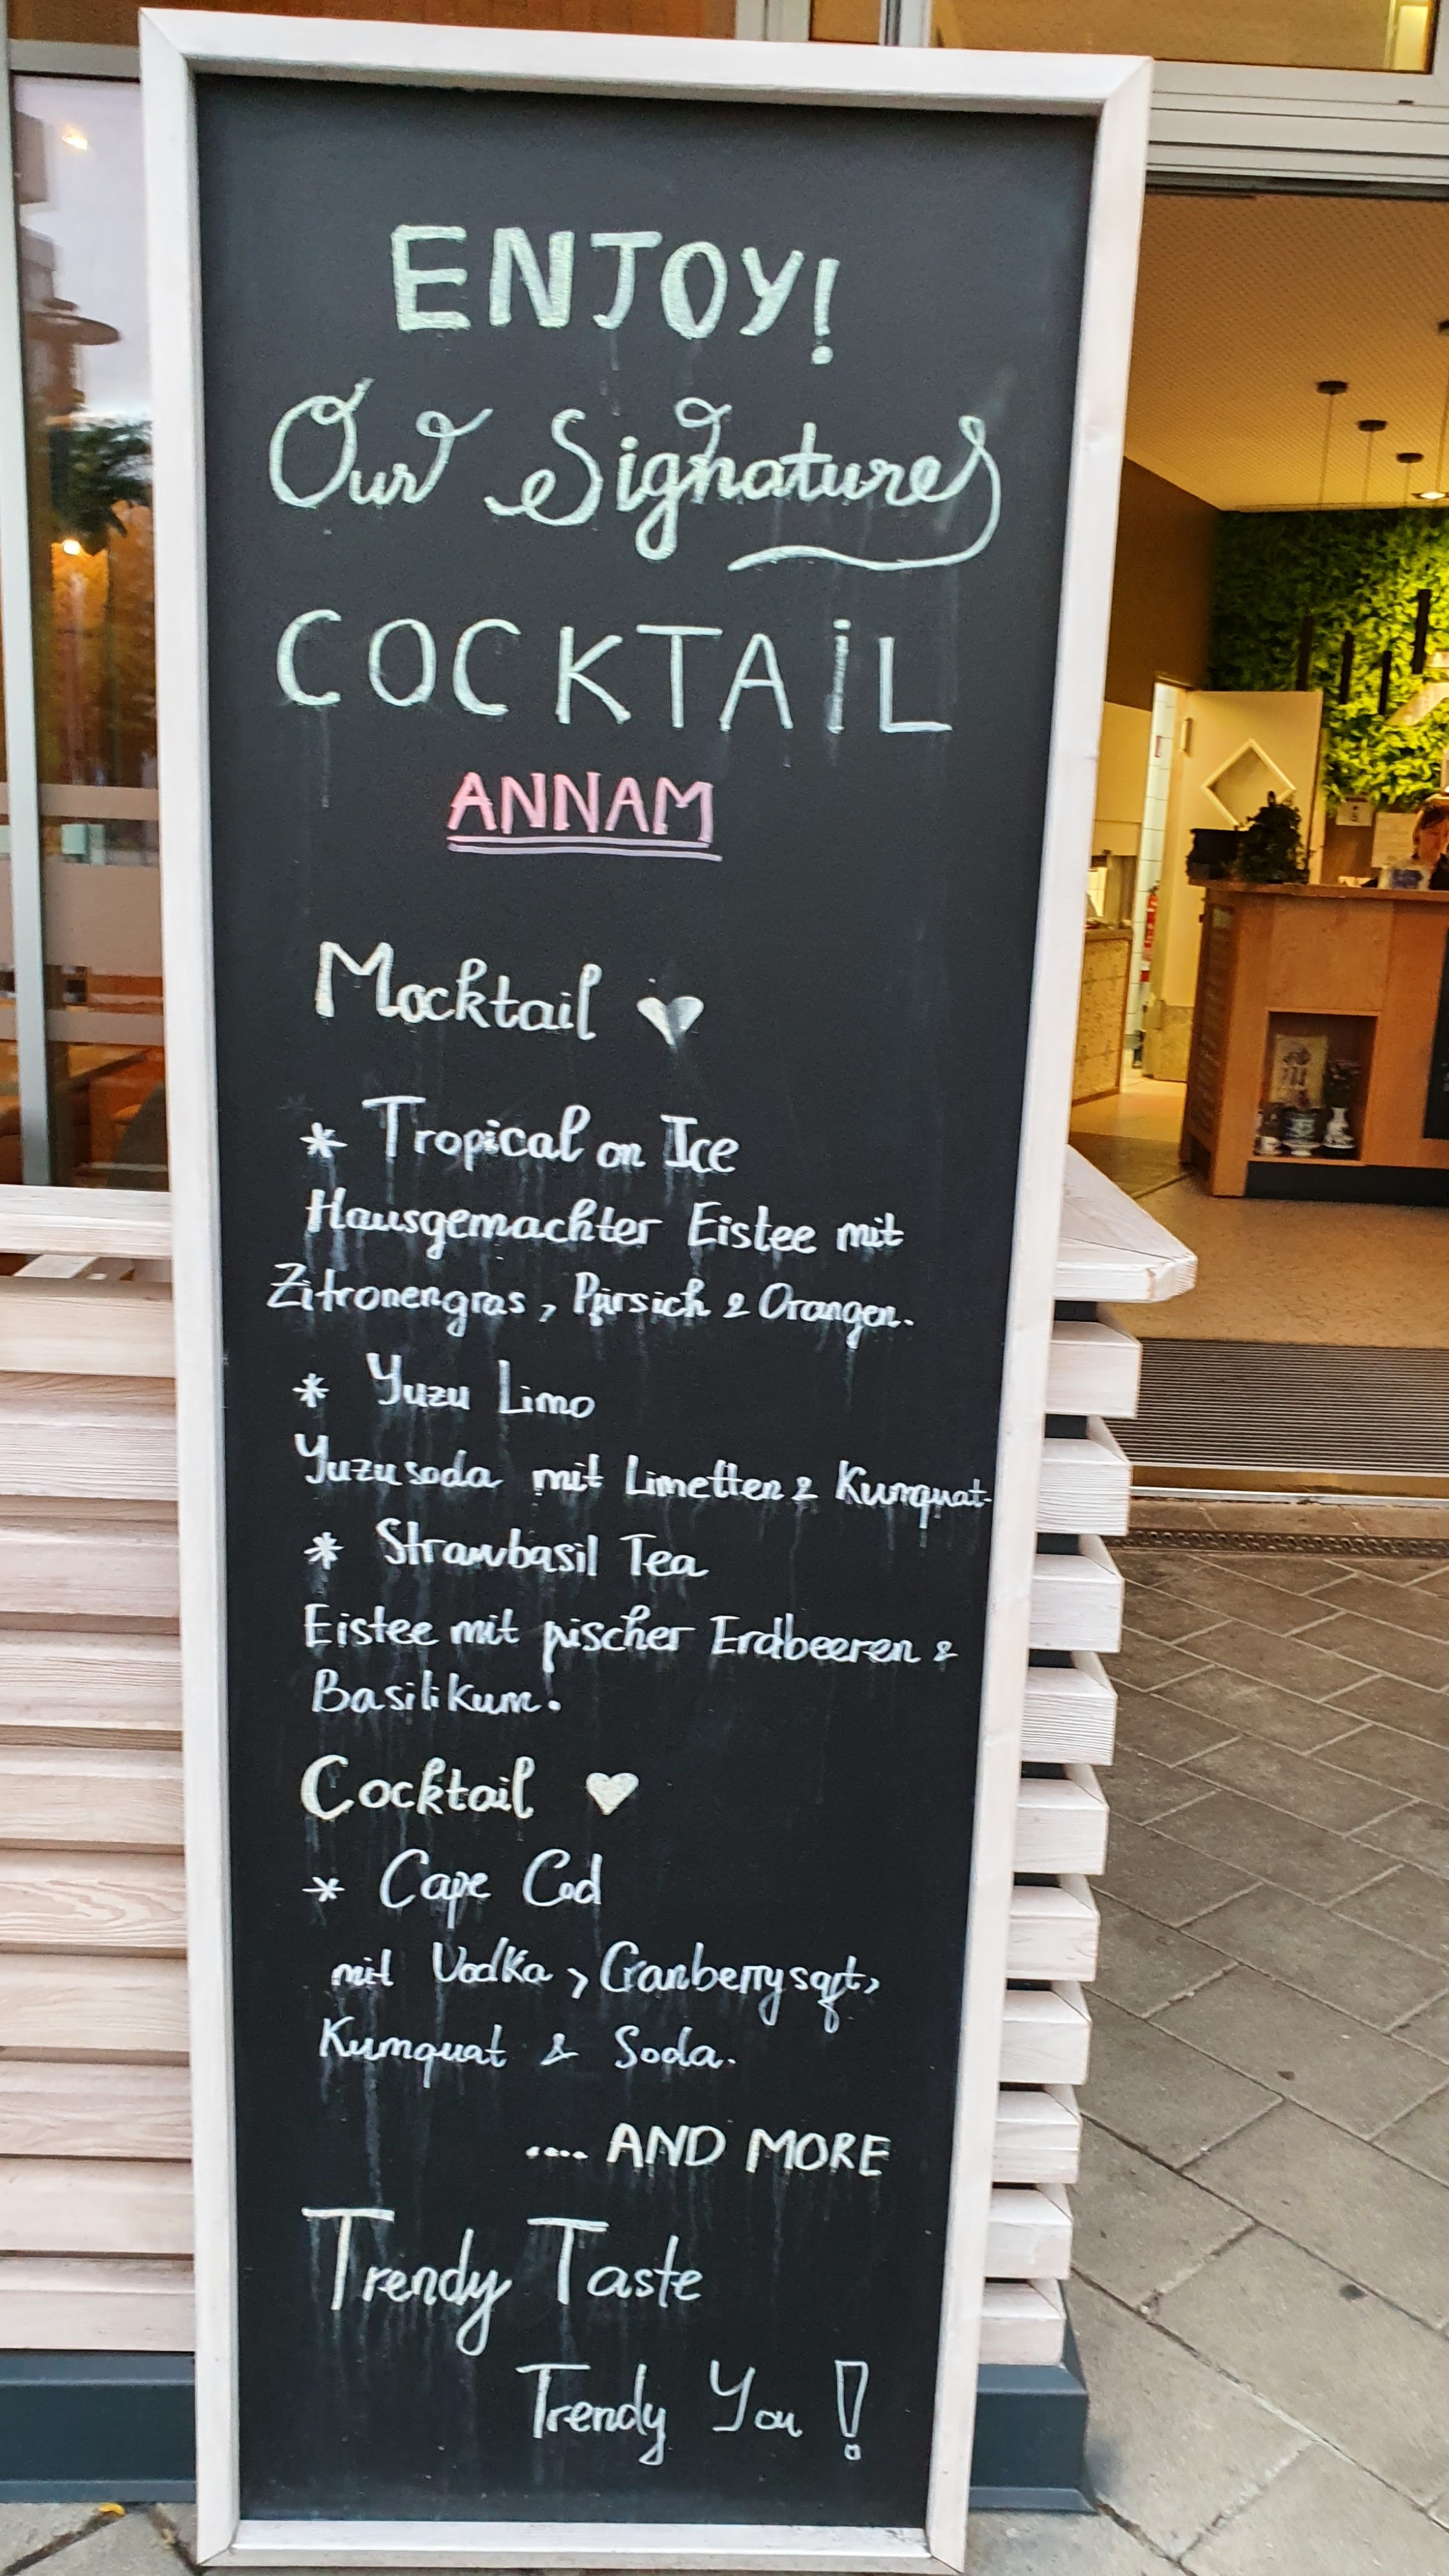 ENJOY!
Our Signatures
COCKTAiL
ANNAM
Mocktail ♥
* Tropical on Ice
Hausgemachter Eistee mit
Zitronengras, Pfirsich & Orangen.
* Yuzu Limo
Yuzusoda mit Limetten & Kumquat.
* Strawbasil Tea
Eistee mit frischer Erdbeeren &
Basilikum.
Cocktail ♥
* Cape Cod
mit Vodka, Cranberrysaft,
Kumquat & Soda.
.... AND MORE
Trendy Taste
Trendy You!